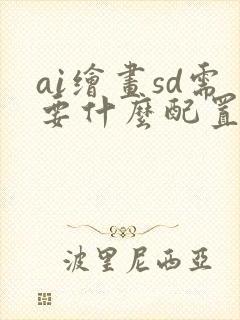 ai繪畫sd需
要什麼配置
波里尼西亞